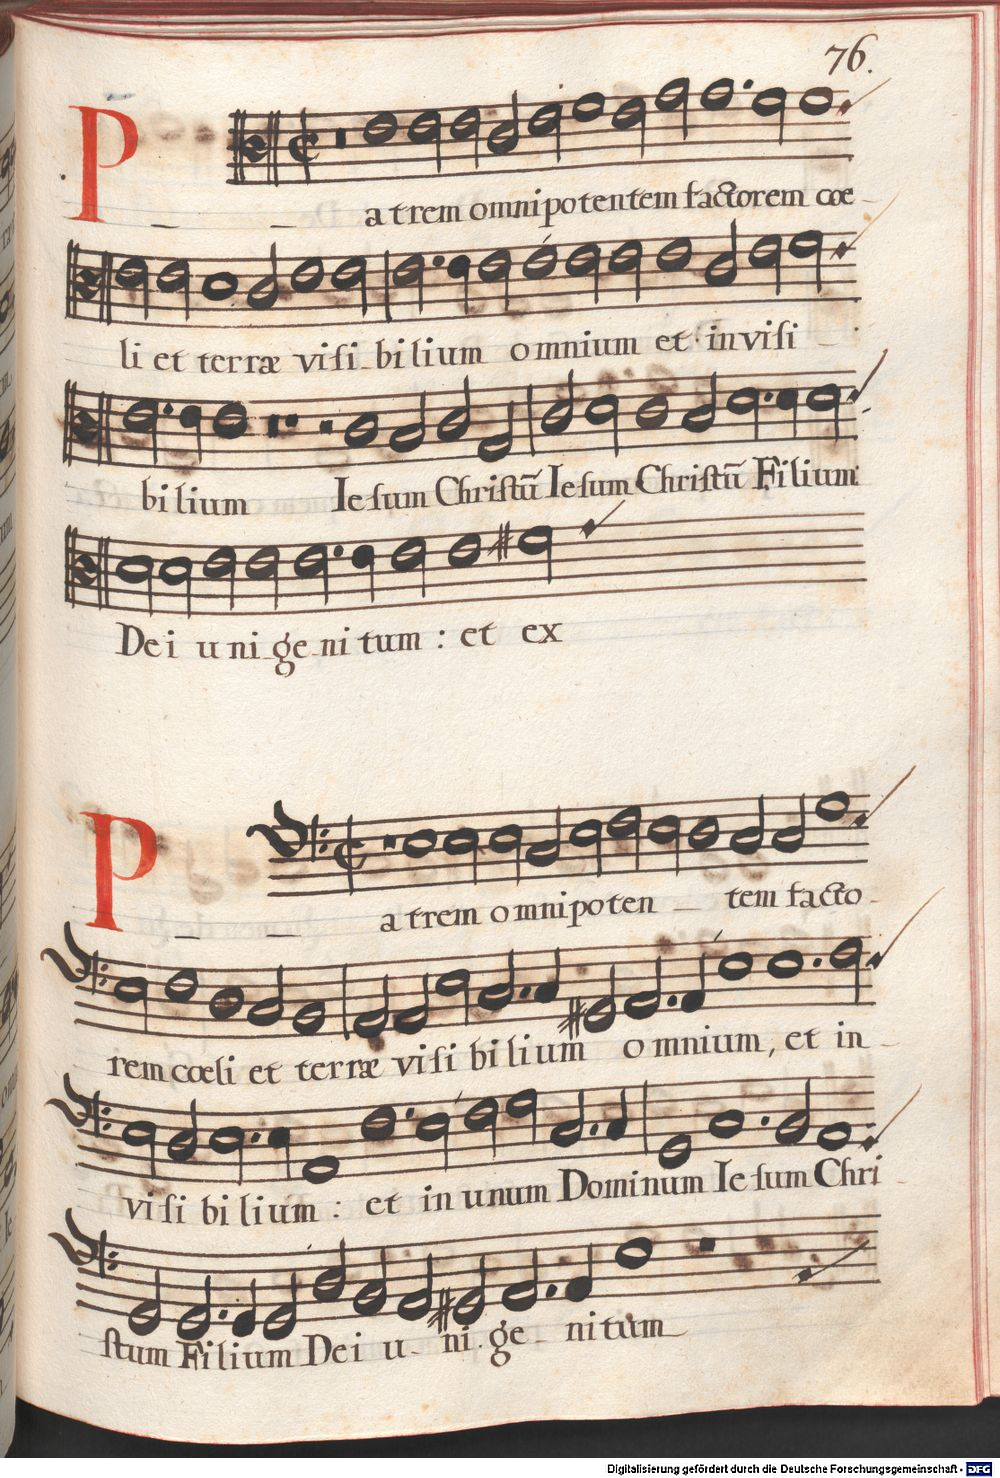 76.
P
a trem omnipotentem factorem coe-
li et terræ visi-bilium omnium et invisi-
bilium Iesum Christū Iesum Christū Filium
Dei uni-ge-nitum: et ex
P
a trem omnipoten-tem facto-
rem coeli et terræ visi bilium omnium, et in-
visi bilium: et in unum Dominum Iesum Chri-
stum Filium Dei u-ni-ge-nitum
Digitalisierung gefördert durch die Deutsche Forschungsgemeinschaft - DFG